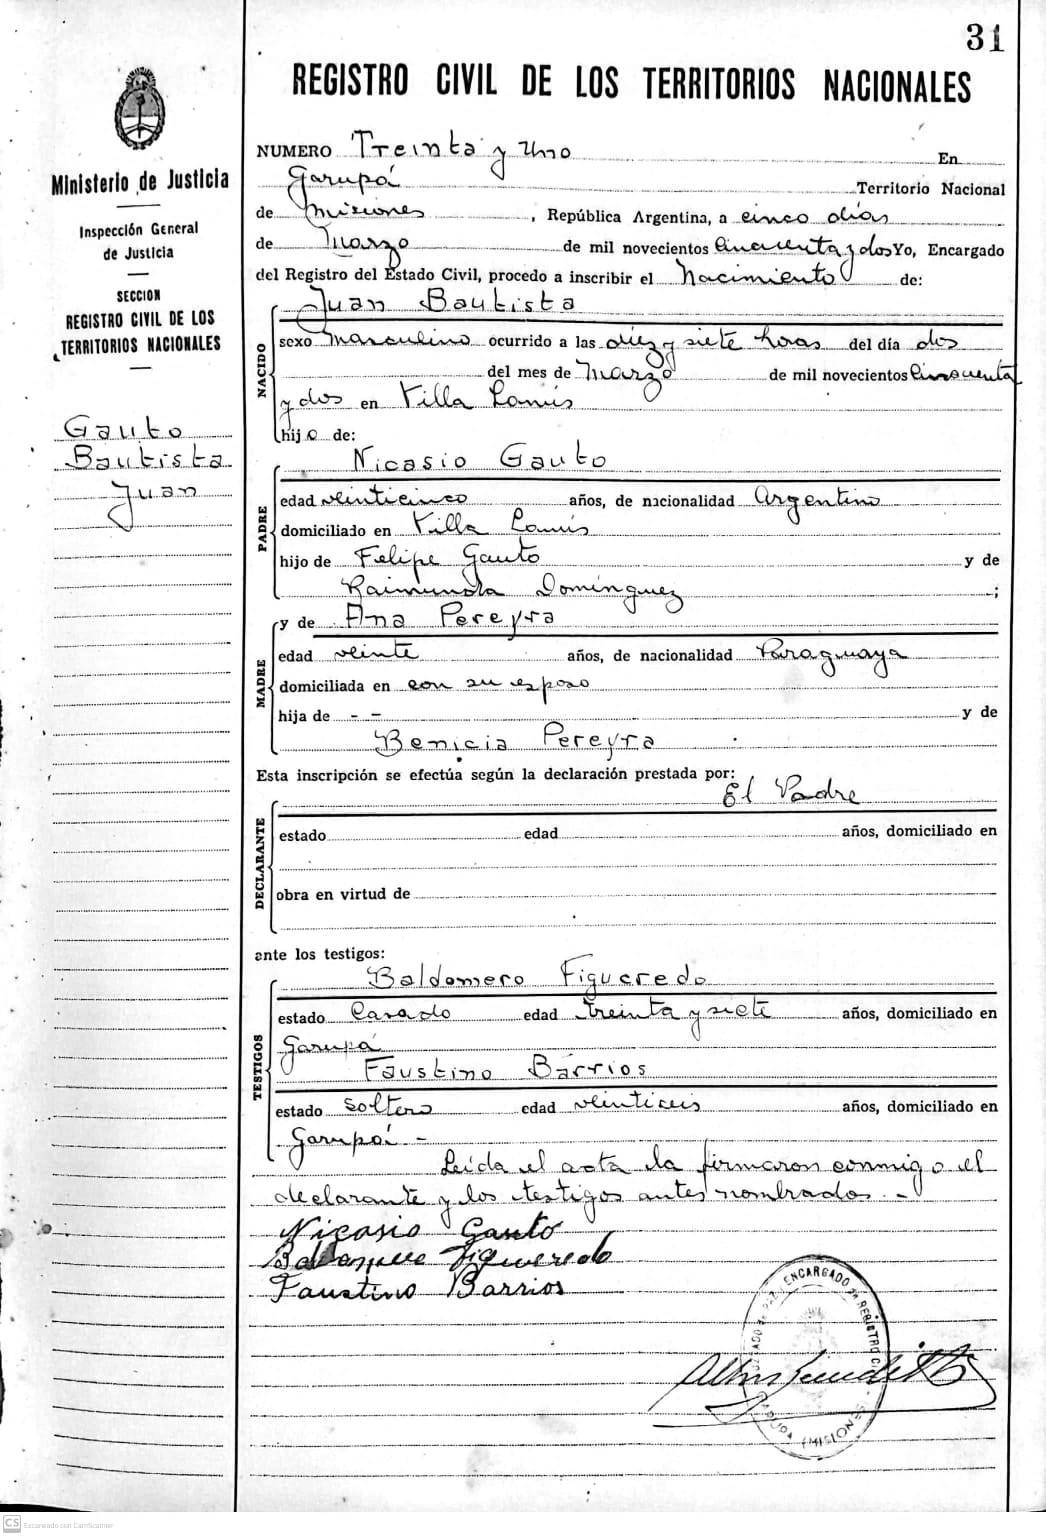 31
REGISTRO CIVIL DE LOS TERRITORIOS NACIONALES
Ministerio de Justicia
Inspección General
de Justicia
SECCION
REGISTRO CIVIL DE LOS
TERRITORIOS NACIONALES
Gauto
Bautista
Juan
NUMERO Treinta y Uno En
Garupá Territorio Nacional
de Misiones, República Argentina, a cinco días
de Marzo de mil novecientos Cincuenta y dos Yo, Encargado
del Registro del Estado Civil, procedo a inscribir el Nacimiento de:
NACIDO
Juan Bautista
sexo Masculino ocurrido a las diez y siete horas del día dos
del mes de Marzo de mil novecientos Cincuenta
y dos en Villa Lanús
hijo de:
PADRE
Nicasio Gauto
edad veinticinco años, de nacionalidad Argentino
domiciliado en Villa Lanús
hijo de Felipe Gauto y de
Raimunda Domínguez ;
MADRE
y de Ana Pereyra
edad veinte años, de nacionalidad Paraguaya
domiciliada en con su esposo
hija de - - y de
Benicia Pereyra
Esta inscripción se efectúa según la declaración prestada por:
DECLARANTE
El Padre
estado edad años, domiciliado en
obra en virtud de
ante los testigos:
TESTIGOS
Baldomero Figueredo
estado Casado edad treinta y siete años, domiciliado en
Garupá
Faustino Barrios
estado soltero edad veinticeis años, domiciliado en
Garupá -
Leída el acta la firmaron conmigo el
declarante y los testigos antes nombrados -
Nicasio Gauto
Figueredo
Faustino Barrios
ENCARGADO DE REGISTRO
GARUPA (MISIONES)
CS Escaneado con CamScanner